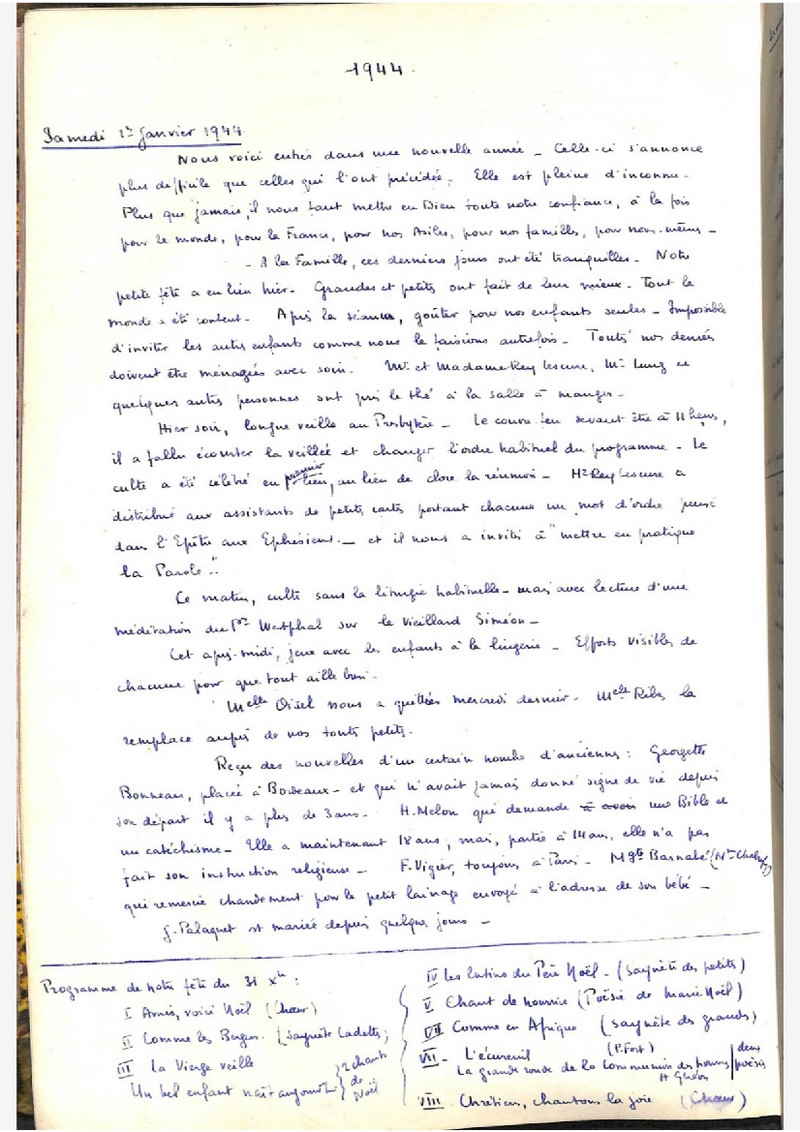 1944.
Samedi 1er Janvier 1944
Nous voici entrés dans une nouvelle année _ Celle-ci s'annonce
plus difficile que celles qui l'ont précédée. Elle est pleine d'inconnu.
Plus que jamais, il nous faut mettre en Dieu toute notre confiance, à la fois
pour le monde, pour la France, pour nos Asiles, pour nos familles, pour nous-mêmes _
_ A la Famille, ces derniers jours ont été tranquilles _ Notre
petite fête a eu lieu hier _ Grandes et petits ont fait de leur mieux _ Tout le
monde a été content _ Après la séance, goûter pour nos enfants seules _ Impossible
d'inviter les autres enfants comme nous le faisions autrefois _ Toutes nos denrées
doivent être ménagées avec soin. Mr et Madame Rey Lescure, Mr Lung et
quelques autres personnes ont pris le thé à la salle à manger _
Hier soir, longue veillée au Presbytère _ Le couvre-feu devant être à 11 heures,
il a fallu écourter la veillée et changer l'ordre habituel du programme _ Le
culte a été célébré en premier lieu, au lieu de clore la réunion _ Mr Rey Lescure a
distribué aux assistants de petites cartes portant chacune un mot d'ordre puisé
dans l'Epître aux Ephésiens _ et il nous a invités à "mettre en pratique
la Parole".
Ce matin, culte sans la liturgie habituelle _ mais avec lecture d'une
méditation du Pr Westphal sur le vieillard Siméon _
Cet après-midi, jeux avec les enfants à la lingerie _ Efforts visibles de
chacune pour que tout aille bien.
Melle Oisel nous a quittées mercredi dernier. Melle Ribes la
remplace auprès de nos touts petits.
Reçu des nouvelles d'un certain nombre d'anciennes : Georgette
Bonneau, placée à Bordeaux _ et qui n'avait jamais donné signe de vie depuis
son départ il y a plus de 3 ans _ H. Melon qui demande à avoir une Bible et
un catéchisme _ Elle a maintenant 18 ans, mais, partie à 14 ans, elle n'a pas
fait son instruction religieuse _ F. Vigier, toujours à Paris _ Mgte Barnabé (Me
qui remercie chaudement pour le petit lainage envoyé à l'adresse de son bébé _
J. Palaquet est mariée depuis quelques jours _
Programme de notre fête du 31 Xbre :
I Amis, voici Noël (Chœur)
II Comme les Bergers. (Saynète Cadettes;
III La Vierge veille
Un bel enfant naît aujourd'hui } 2 chants de Noël
IV Les lutins du Père Noël _ (Saynète des petits)
V Chant de nourrice (Poésie de Marie Noël)
VI Comme en Afrique (Saynète des grandes)
VII _ L'écureuil (P. Fort)
La grande ronde de la Communion des hommes | deux poésies
H Ghéon
VIII Chrétiens, chantons la joie (Chœur)